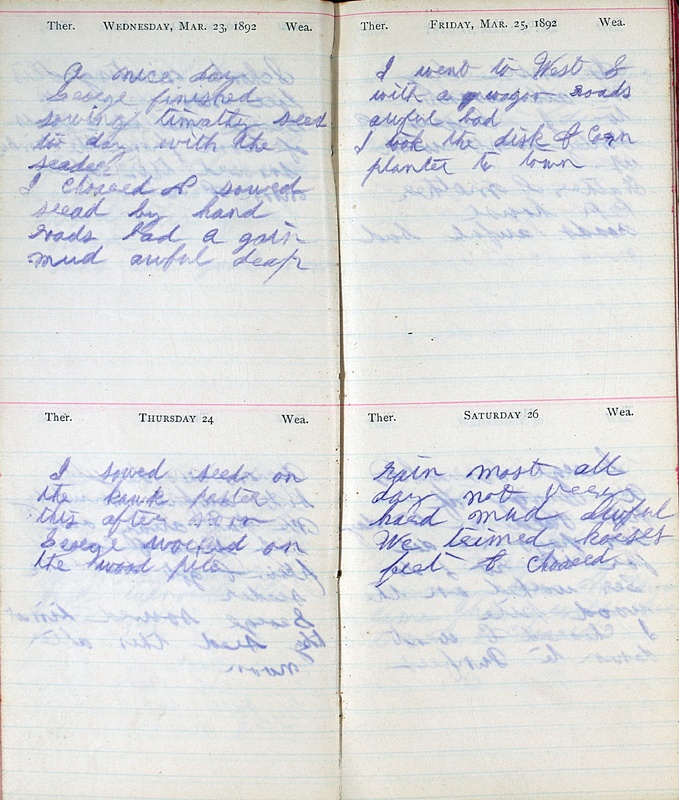 Ther. WEDNESDAY, MAR. 23, 1892 Wea.
A nice day
George finished
sowing timathy seed
to day with the
seader
I chored & sowed
seead by hand
roads bad a gain
mud awful deap
Ther. THURSDAY 24 Wea.
I sowed seed on
the paster
this after noon
George worked on
the wood pile
Ther. FRIDAY, MAR. 25, 1892 Wea.
I went to West
with a wagon roads
awful bad
I took the disk & Corn
planter to town
Ther. SATURDAY 26 Wea.
rain most all
day not very
hard mud awful
We trimed horses
feet & chored